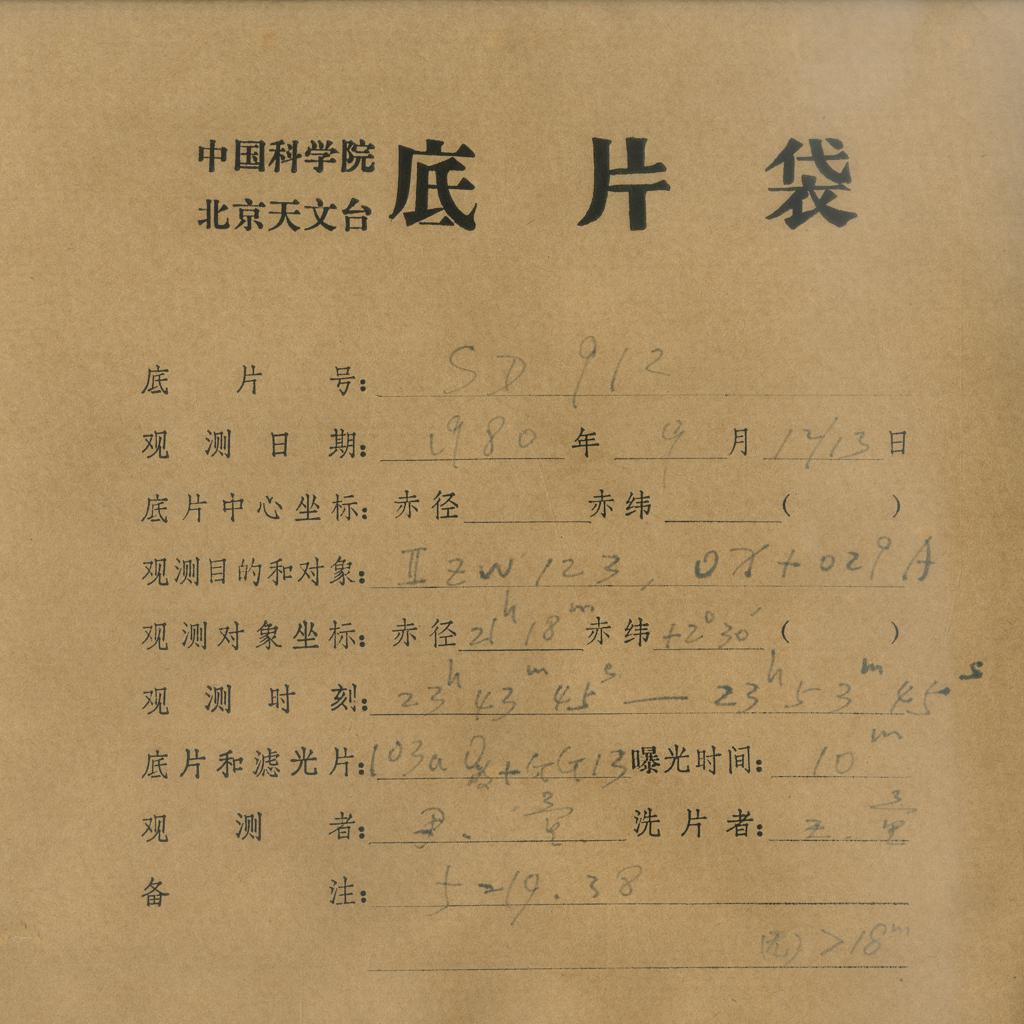 中国科学院
北京天文台 底片袋
底片号: SD 912
观测日期: 1980 年 9 月 12/13 日
底片中心坐标: 赤径 赤纬 ( )
观测目的和对象: II ZW 123, OX+029 A
观测对象坐标: 赤径 21h 18m 赤纬 +2°30′ ( )
观测时刻: 23h 43m 45s — 23h 53m 45s
底片和滤光片: 103aO + GG13 曝光时间: 10m
观测者: 洗片者:
备注: t=19.38
>18m